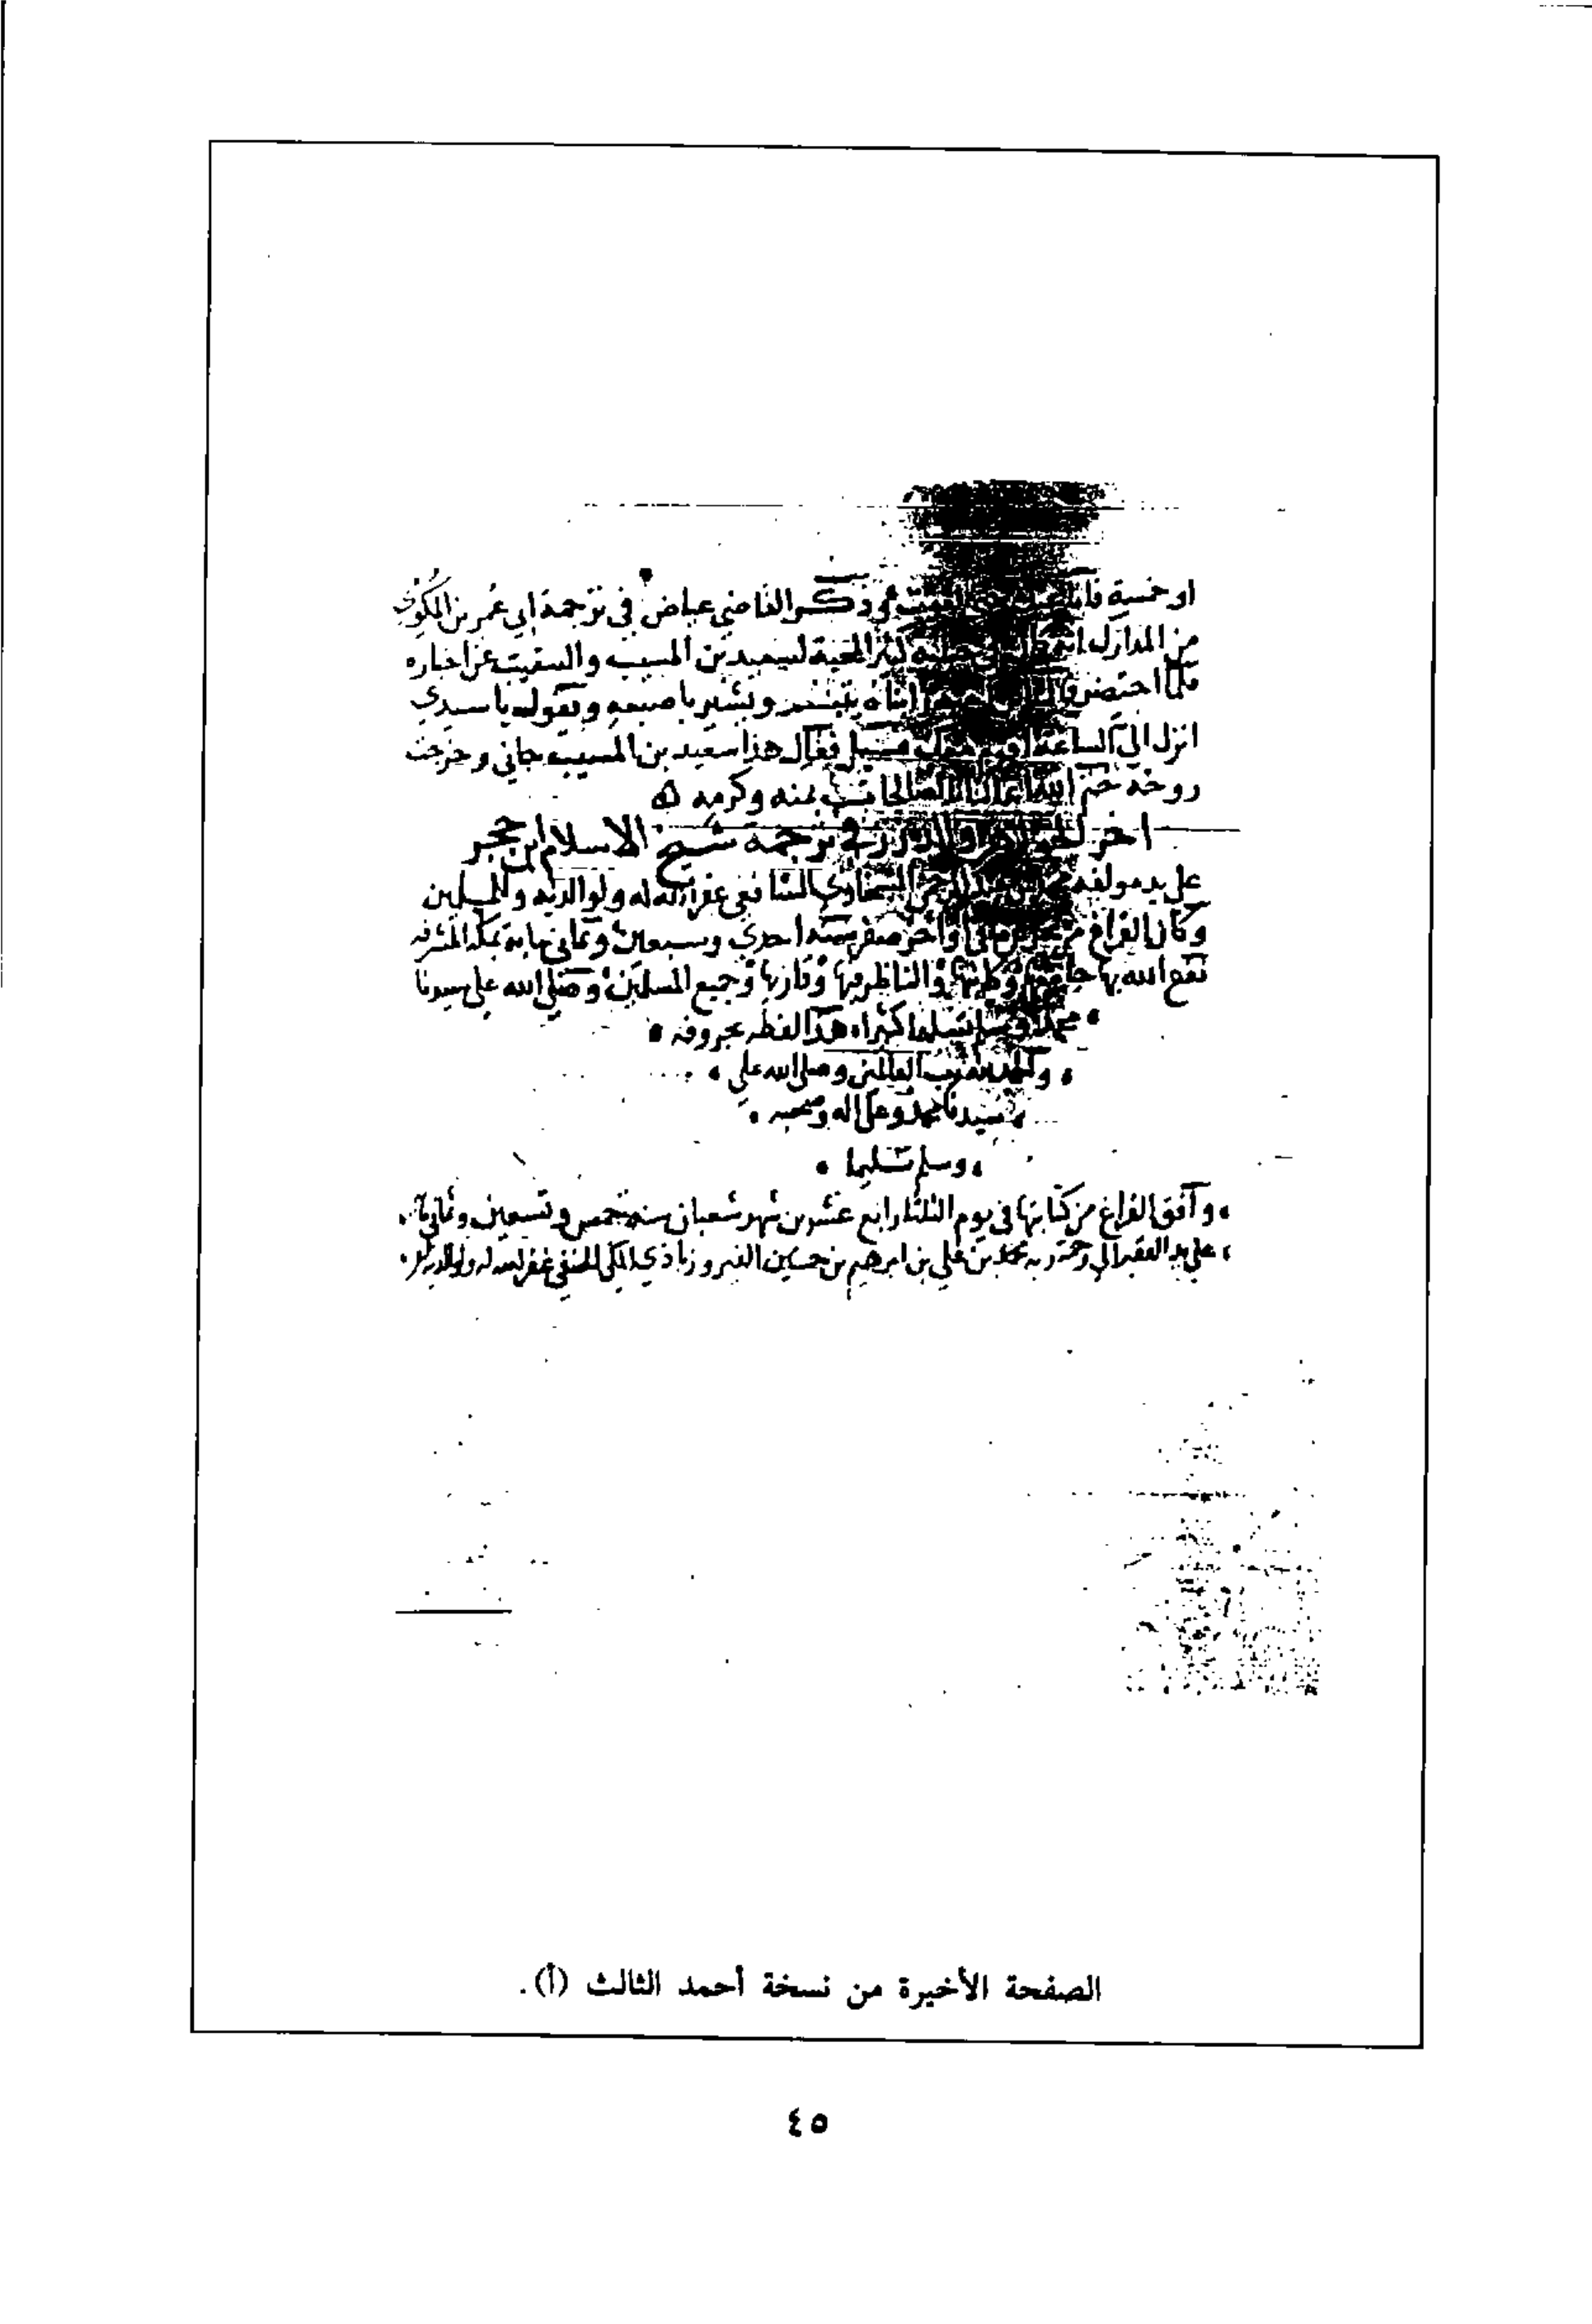 او خمسة وذكر القاضي عياض في ترجمة ابي عمر بن المكوي
من المدارك انه كثير المحبة لسعيد بن المسيب والتبقيت عن اخباره
فلما احتضر اتاه يتبسم ويشير باصبعه ويقول يا سيدي
انزل الي الساعة فقال هذا سعيد بن المسيب جاني وخرجت
روحه ختم الله لنا بالصالحات بمنه وكرمه
اخر الجواهر والدرر في ترجمة شيخ الاسلام ابن حجر
على يد مولفه محمد بن عبد الرحمن السخاوي الشافعي غفر الله له ولوالديه والمسلمين
وكان الفراغ من في اواخر صفر سنة احدى وسبعين وثماني ماية بمكة المشرفه
نفع الله بها جامعها وكاتبها والناظر فيها وقارئها وجميع المسلمين وصلى الله على سيدنا
محمد وسلم تسليما كثيرا هذا لفظه بحروفه
والحمد لله رب العالمين وصلى الله على
سيدنا محمد وعلى اله وصحبه
وسلم تسليما
وافق الفراغ من كتابتها في يوم الثلثا رابع عشر من شهر شعبان سنة خمس وتسعين وثماني مائه
على يد الفقير الى رحمة ربه محمد بن علي بن ابرهيم بن حسين المكي الحنفي غفر الله له ولوالديه
الصفحة الأخيرة من نسخة أحمد الثالث (أ).
٤٥